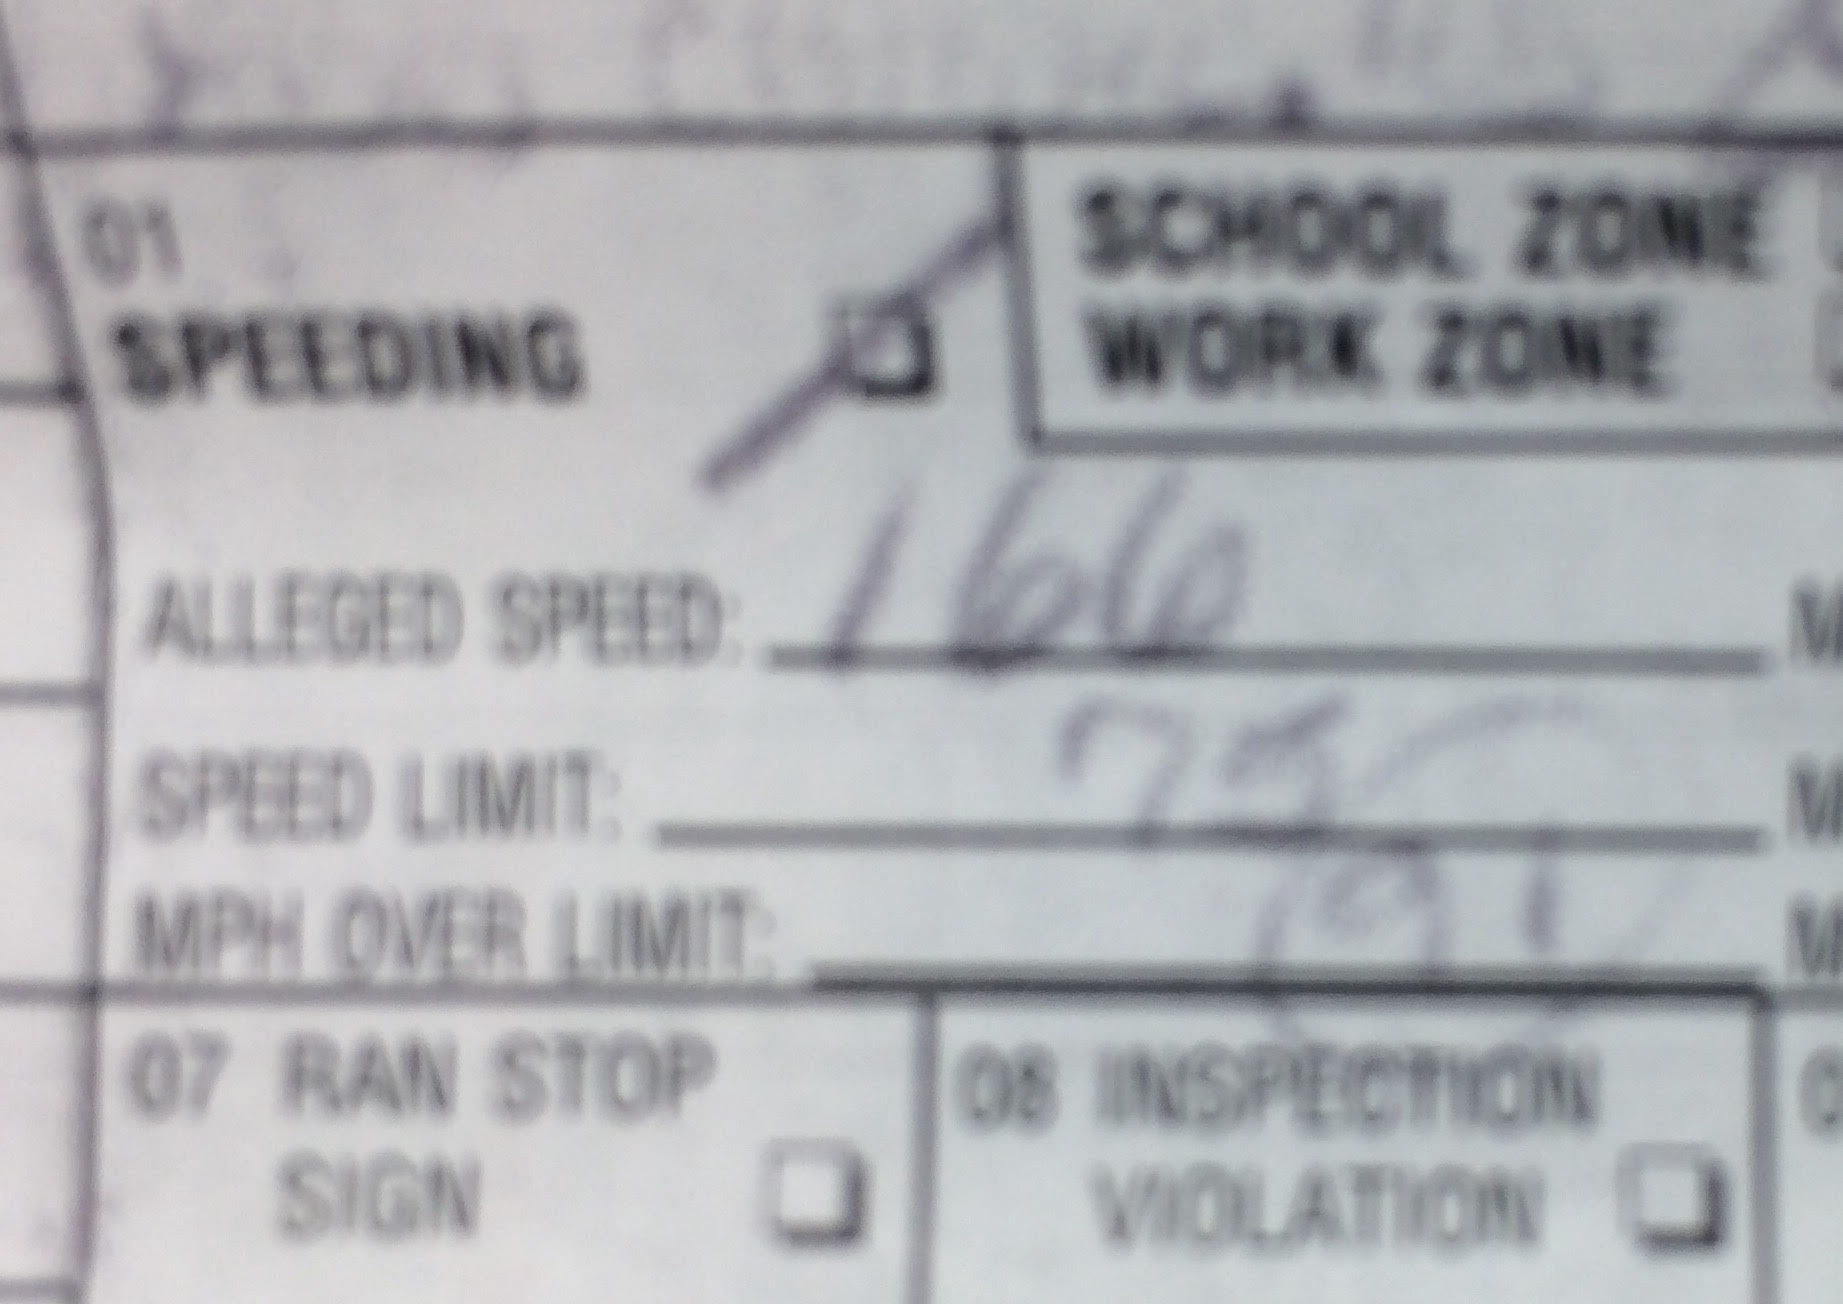 01
SPEEDING
SCHOOL ZONE
WORK ZONE
ALLEGED SPEED: 166
SPEED LIMIT: 75
MPH OVER LIMIT: 91
07 RAN STOP
SIGN
08 INSPECTION
VIOLATION